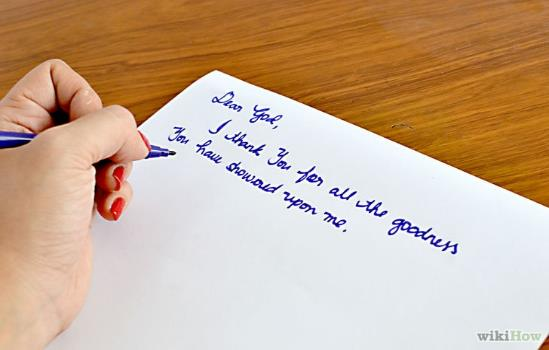 Dear God,
I thank You for all the goodness
You have showord upon me.
wikiHow